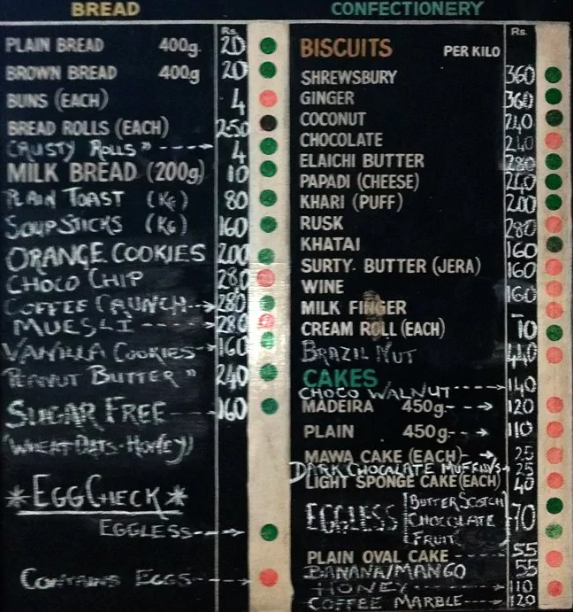 BREAD
Rs.
PLAIN BREAD 400g. 20
BROWN BREAD 400g 20
BUNS (EACH) 4
BREAD ROLLS (EACH) 2.50
CRUSTY ROLLS " 4
MILK BREAD (200g) 10
PLAIN TOAST (Kg) 80
SOUPSTICKS (KG) 160
ORANGE COOKIES 200
CHOCO CHIP 280
COFFEE CRUNCH 280
MUESLI 280
VANILLA COOKIES 160
PEANUT BUTTER " 240
SUGAR FREE 160
(WHEAT-OATS-HONEY)
*EGGCHECK*
EGGLESS
CONTAINS EGGS
CONFECTIONERY
Rs.
BISCUITS PER KILO
SHREWSBURY 360
GINGER 360
COCONUT 240
CHOCOLATE 240
ELAICHI BUTTER 280
PAPADI (CHEESE) 240
KHARI (PUFF) 200
RUSK 280
KHATAI 160
SURTY. BUTTER (JERA) 160
WINE 160
MILK FINGER –
CREAM ROLL (EACH) 10
BRAZIL NUT 440
CAKES
CHOCO WALNUT 140
MADEIRA 450g 120
PLAIN 450g 110
MAWA CAKE (EACH) 25
DARK CHOCOLATE MUFFINS 25
LIGHT SPONGE CAKE (EACH) 40
BUTTERSCOTCH
EGGLESS CHOCOLATE 70
FRUIT
PLAIN OVAL CAKE 55
BANANA/MANGO 55
HONEY 110
COFFEE MARBLE 120